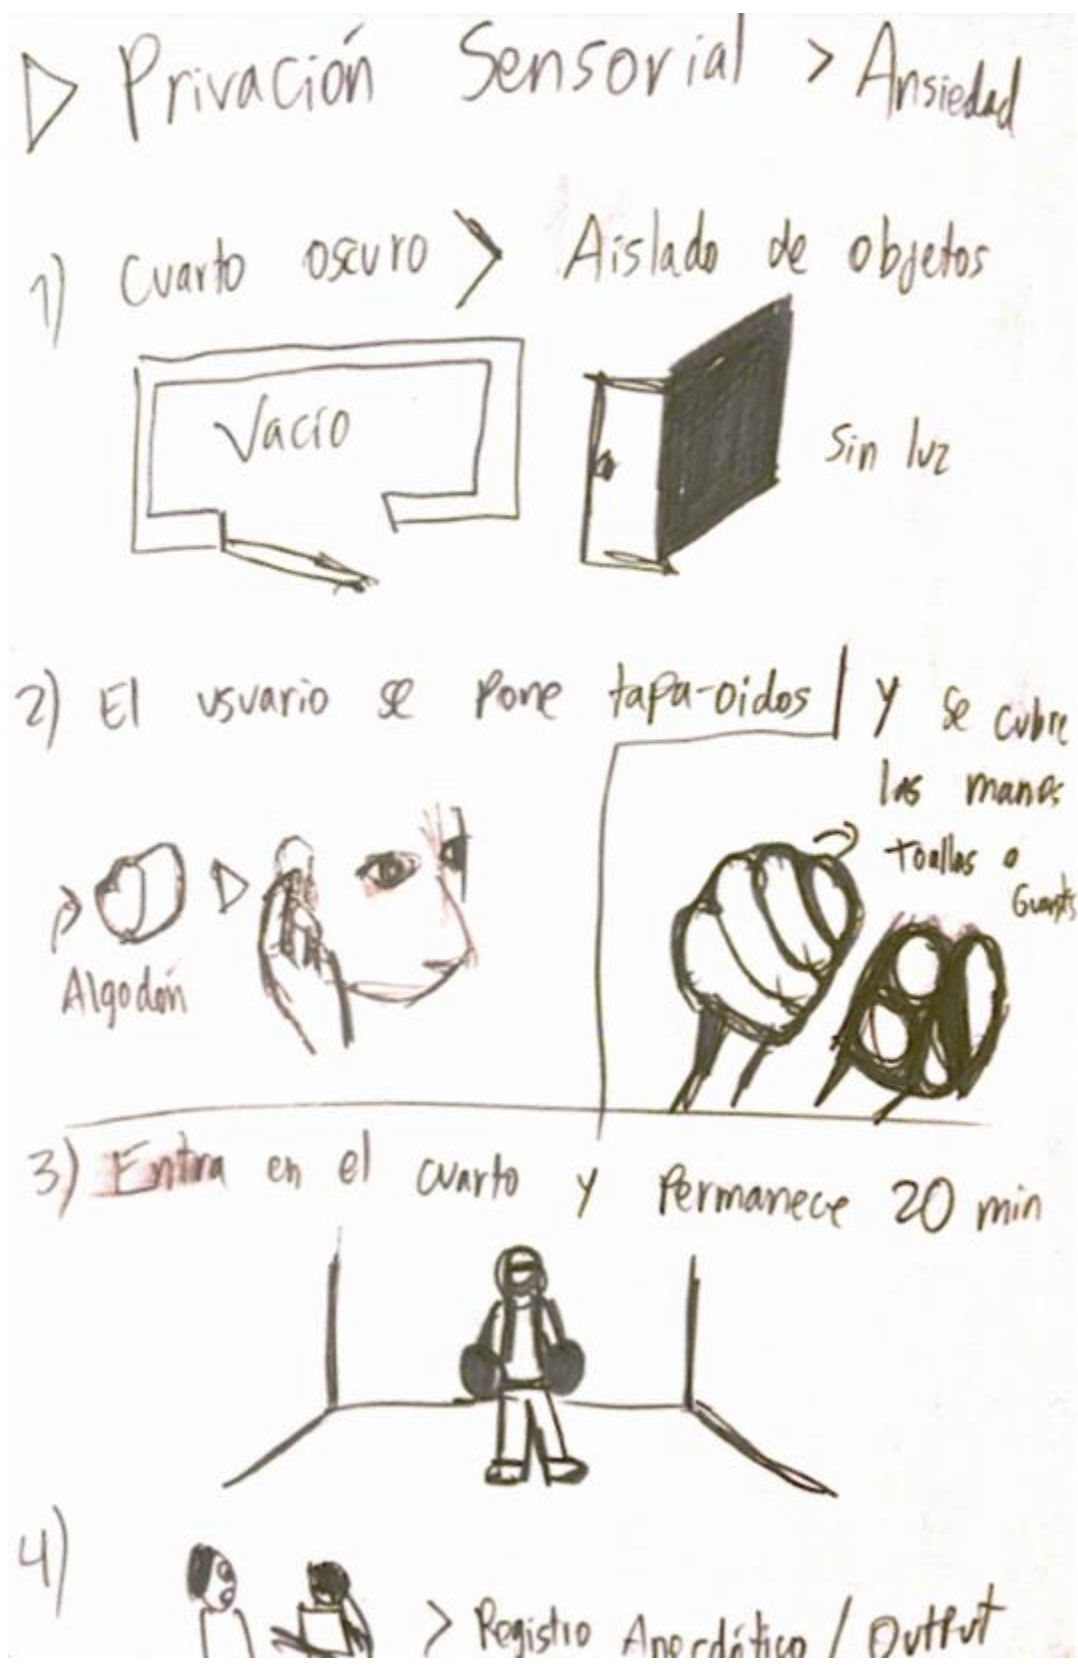 Privación Sensorial > Ansiedad
1) Cuarto oscuro > Aislado de objetos
Vacío
Sin luz
2) El usuario se pone tapa-oidos y se cubre
las manos
Toallas o
Guantes
Algodón
3) Entra en el cuarto y Permanece 20 min
4)
> Registro Anecdótico / Output